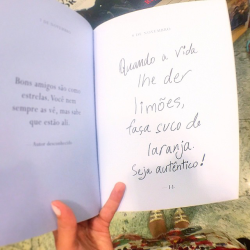 Bons amigos são como
estrelas. Você nem
sempre as vê, mas sabe
que estão ali.
Autor desconhecido
Quando a vida
lhe der
limões,
faça suco de
laranja.
Seja autêntico!
11